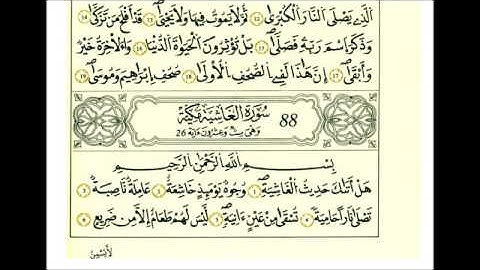 الذِے يَصْلَى النَّارَ ٱلْكُبْرٰى ١٢ ثُمَّ لَا يَمُوتُ فِيهَا وَلَا يَحْيٰى ١٣ قَدَ اَفْلَحَ مَن تَزَكّٰى ١٤
وَذَكَرَ ٱسْمَ رَبِّهِۦ فَصَلّٰى ١٥ بَلْ تُوثِرُونَ ٱلْحَيَوٰةَ ٱلدُّنْيَا ١٦ وَالَاخِرَةُ خَيْرٌ
وَأَبْقٰى ١٧ إِنَّ هَٰذَا لَفِے ٱلصُّحُفِ ٱلُاولٰى ١٨ صُحُفِ إِبْرَٰهِيمَ وَمُوسٰى ١٩
88 سُورَةُ ٱلْغَاشِيَةِ مَكِّيَّة
وَهِيَ سِتٌّ وَعِشْرُونَ ءَايَة 26
بِسْمِ ٱللَّهِ ٱلرَّحْمَٰنِ ٱلرَّحِيمِ
هَلَ اَتٰىكَ حَدِيثُ ٱلْغَٰشِيَةِ ١ وُجُوهٌ يَوْمَئِذٍ خَٰشِعَةٌ ٢ عَامِلَةٌ نَّاصِبَةٌ ٣
تَصْلٰى نَارًا حَامِيَةً ٤ تُسْقٰى مِنْ عَيْنٍ ـَانِيَةٍ ٥ لَّيْسَ لَهُمْ طَعَامٌ اِلَّا مِن ضَرِيعٍ ٦
لَّا يُسْمِنُ